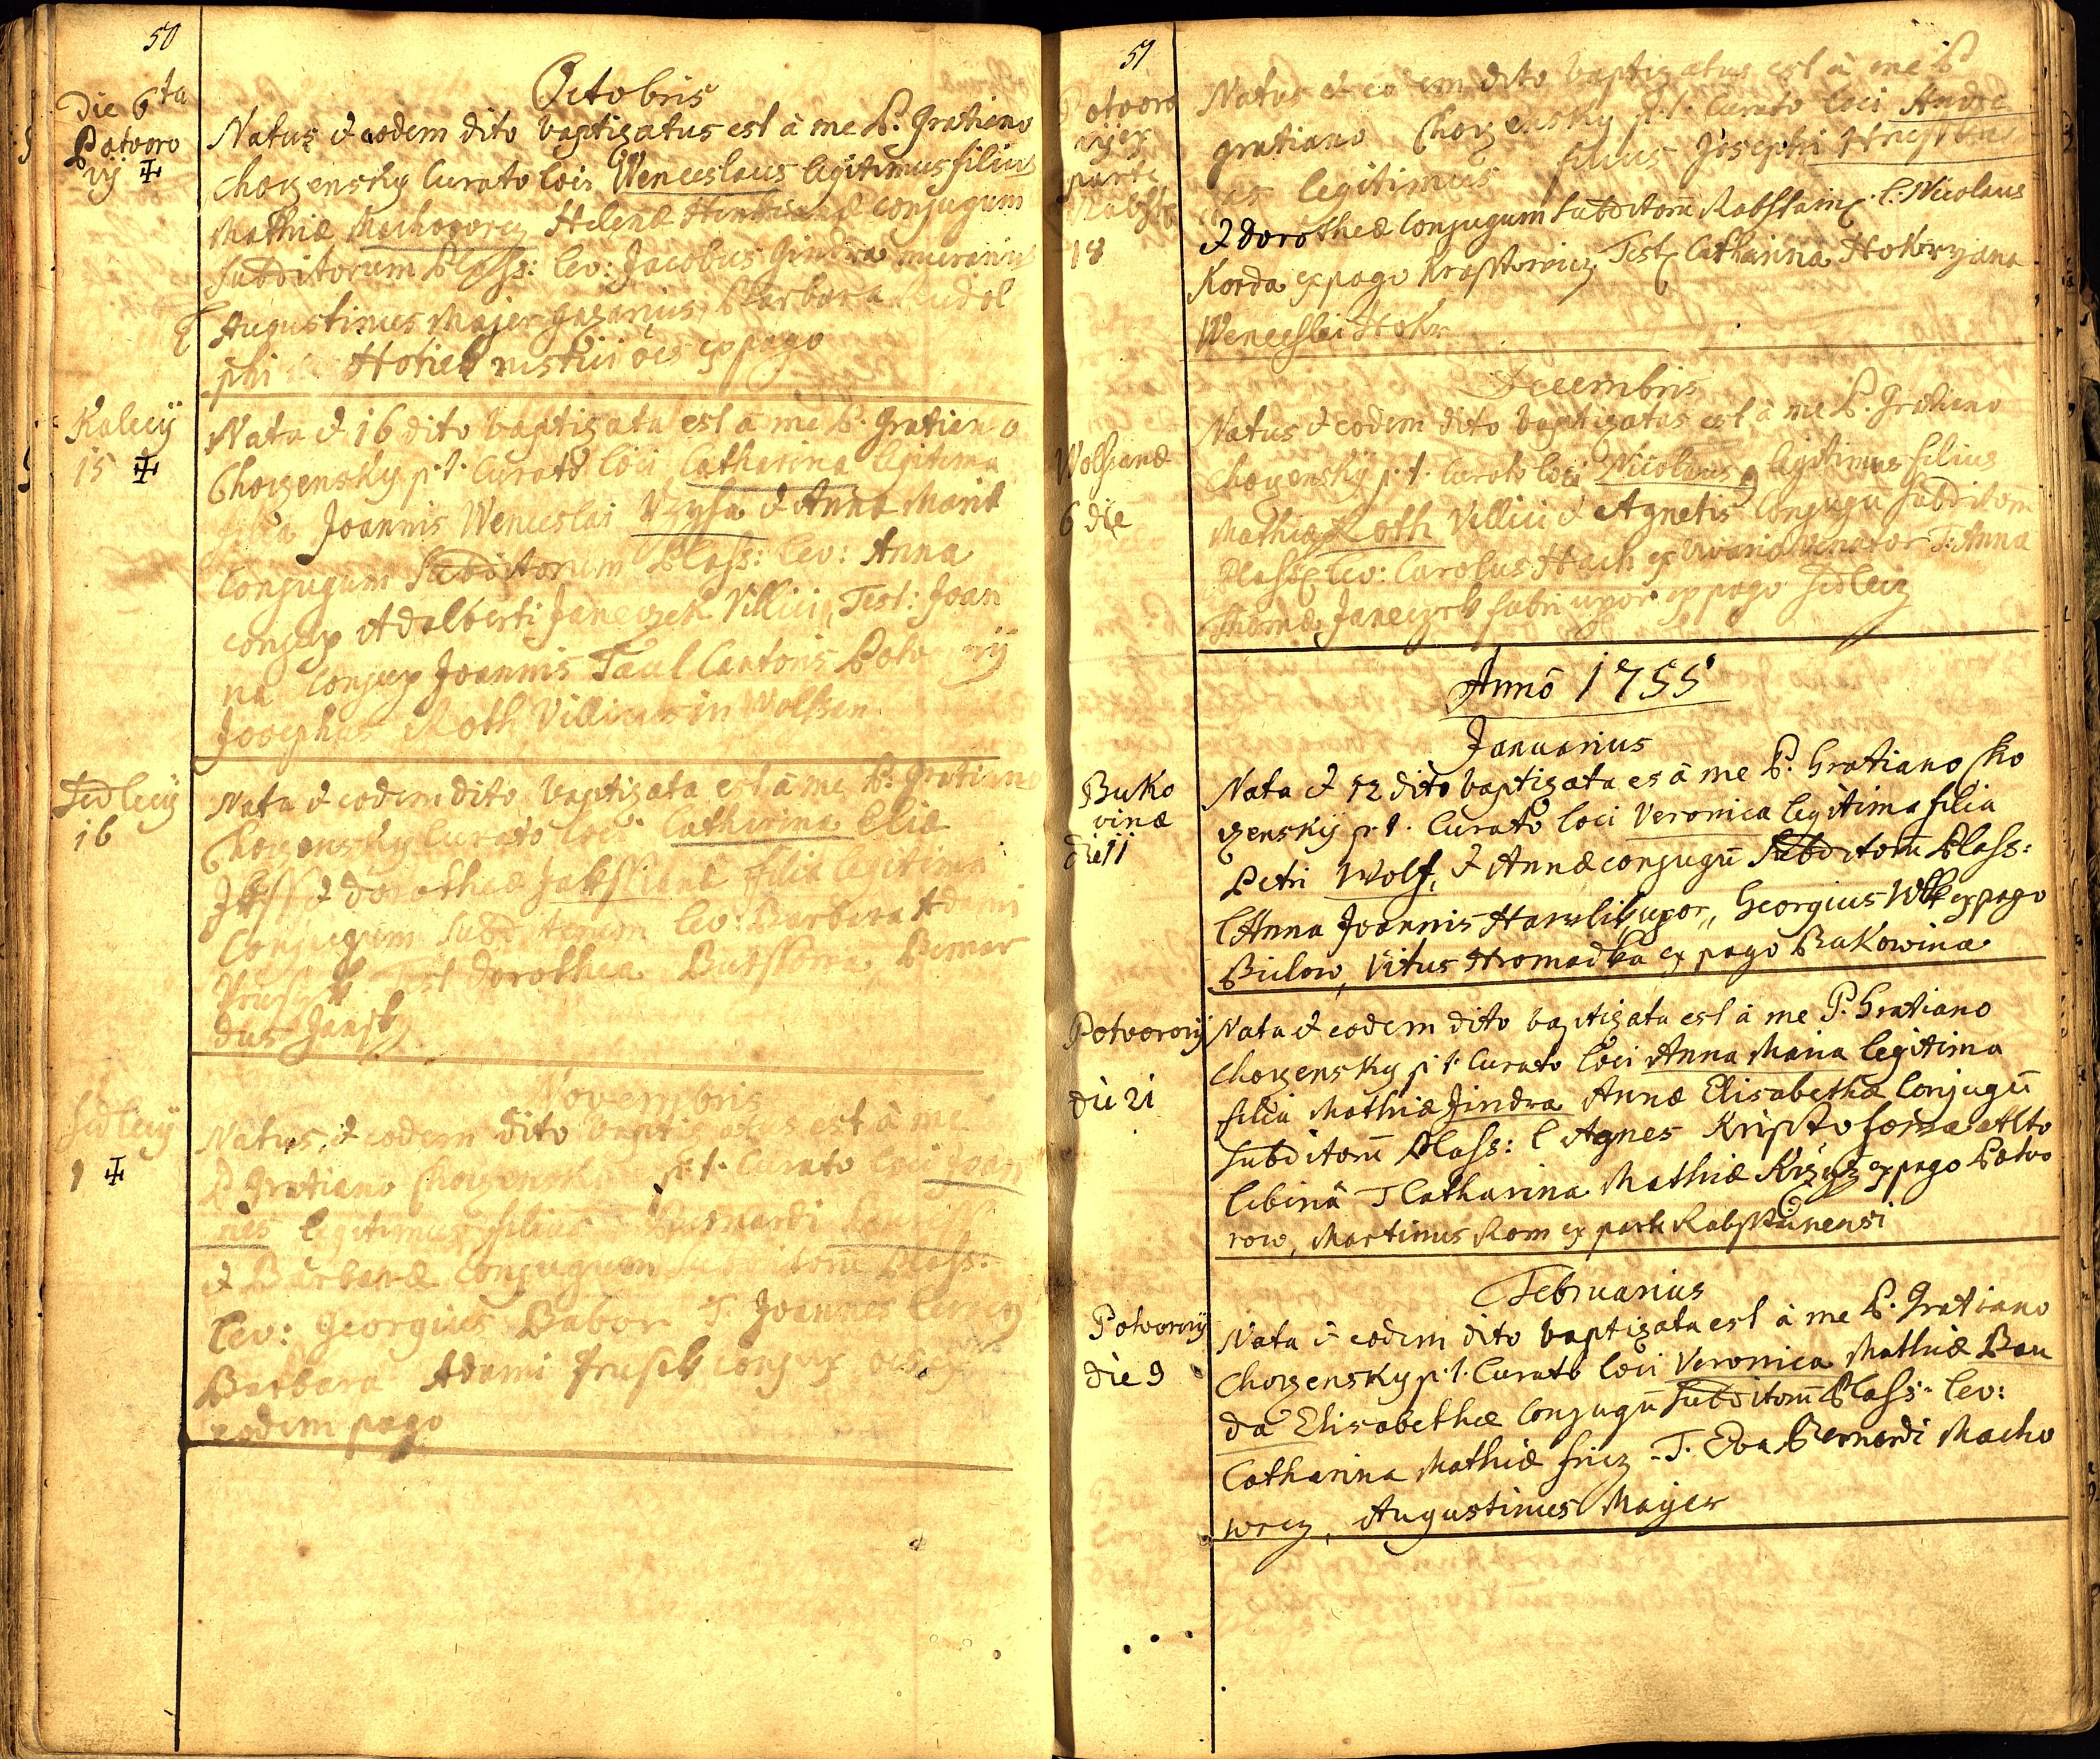 50
Octobris
Die 6ta
Potworo
vij ✠
Natus & eodem dito baptizatus est à me P. Gratiano
Chozensky Curato loci Wenceslaus legitimus filius
Mathiæ Machoworcz Helenæ conjugum
subditorum Plass: lev: Jacobus Gindra murarius
Augustinus Majer gazarius, Barbara Rudol
phi Hotiek rustici oēs ex pago
Kalecij
15 ✠
Nata & 16 dito baptizata est à me P. Gratiano
Chozensky p.t. Curato loci Catharina legitima
filia Joannis Wenceslai & Anna Mariæ
Conjugum subditorum Plass: lev: Anna
conjux Adalberti Janeczek Villici, Test: Joan
na conjux Joannis Taul Cantoris
Josephus Roth Villicus in Wolssan
Sedlecij
16
Nata & eodem dito baptizata est à me P. Gratiano
Chozensky Curato loci Catharina Eliæ
& Dorotheæ filia legitima
Conjugum subditorum lev: Barbara Adami
Test Dorothea Bernar
dus
Novembris
Sedlecij
1 ✠
Natus & eodem dito baptizatus est à me
P. Gratiano Chozensky p.t. Curato loci Joan
nes legitimus filius Bernardi
& Barbaræ conjugum subditorum Plass:
lev: Georgius Babor T. Joannes
Barbara Adami conjux oēs
eodem pago
51
Potworo
vij ex
parte
Rabsst
18
Natus & eodem dito baptizatus est à me P
Gratiano Chozensky p.t. Curato loci Andre
as legitimus filius Josephi
& Dorotheæ Conjugum subditorm̄ Rabsstain: l. Nicolaus
Korda ex pago Test Catharina Hokrzana
Wenceslai Hokr
Decembris
Wolssanæ
6 die
Natus & eodem dito baptizatus est à me P. Gratiano
Chozenský p.t. Curato loci Nicolaus legitimus filius
Mathiæ Roth Villici & Agnetis Conjugū subditorm̄
Plass: lev: Carolus Hach ex Vivario venator T. Anna
Thomæ Janeczek fabri uxor ex pago Sedlecz
Anno 1755
Januarius
Buko
vinæ
die 11
Nata & 12 dito baptizata es à me P. Gratiano Cho
zenskij p.t. Curato loci Veronica legitima filia
Petri Wolf, & Annæ conjugū subditorū Plass:
l Anna Joannis Hawlik uxor, Georgius Wlk ex pago
Bielow, Vitus Hromadka ex pago Bukowina
Potworovij
die 21
Nata & eodem dito baptizata est à me P. Gratiano
Chozensky p.t. Curato loci Anna Maria legitima
filia Mathiæ Jindra Annæ Elisabethæ Conjugū
subditorū Plass: l Agnes
T Catharina Mathiæ ex pago Potwo
row, Martinus Rom ex parte Rabsstinensi
Februarius
Potworovij
die 9
Nata & eodem dito baptizata est à me P. Gratiano
Chozensky p.t. Curato loci Veronica Mathiæ Bau
da Elisabethæ Conjugū subditorū Plass: lev:
Catharina Mathiæ fricz - T. Eva Bernardi Macho
wrcz, Augustinus Mayer